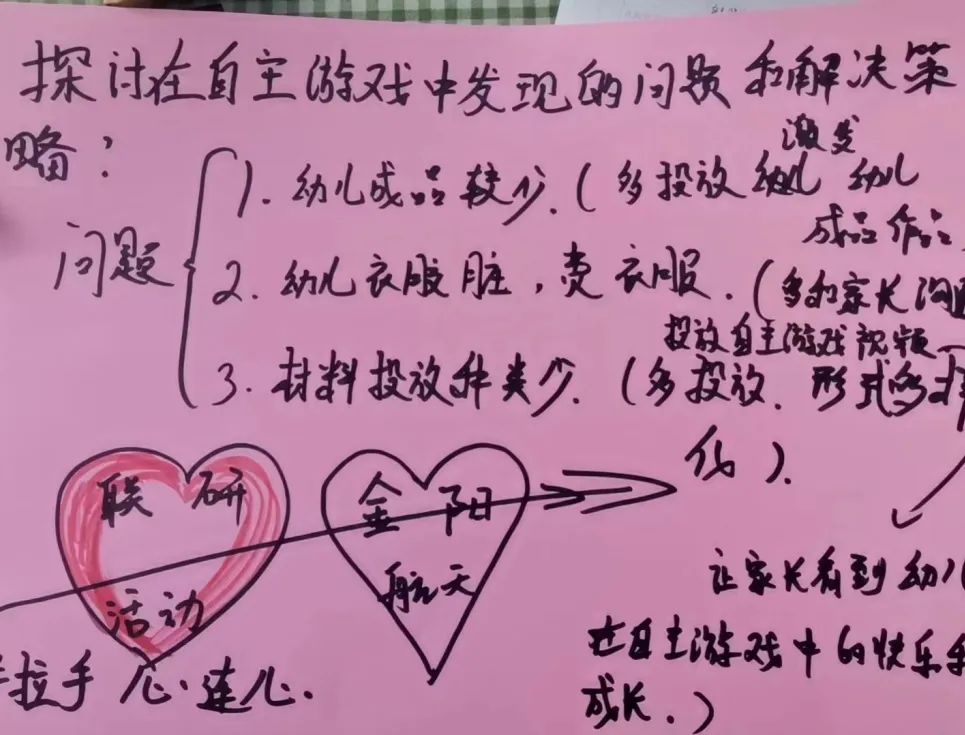 探讨在自主游戏中发现的问题和解决策
略：
问题
1. 幼儿成品较少.(多投放 幼儿
激发 幼儿
成品作品
2. 幼儿衣服脏，卖衣服.(多和家长沟
投放自主游戏视频
3. 材料投放种类少.(多投放. 形式多样
化).
联研
活动
金阳
航天
让家长看到幼儿
在自主游戏中的快乐
成长.)
拉手 心·连心.